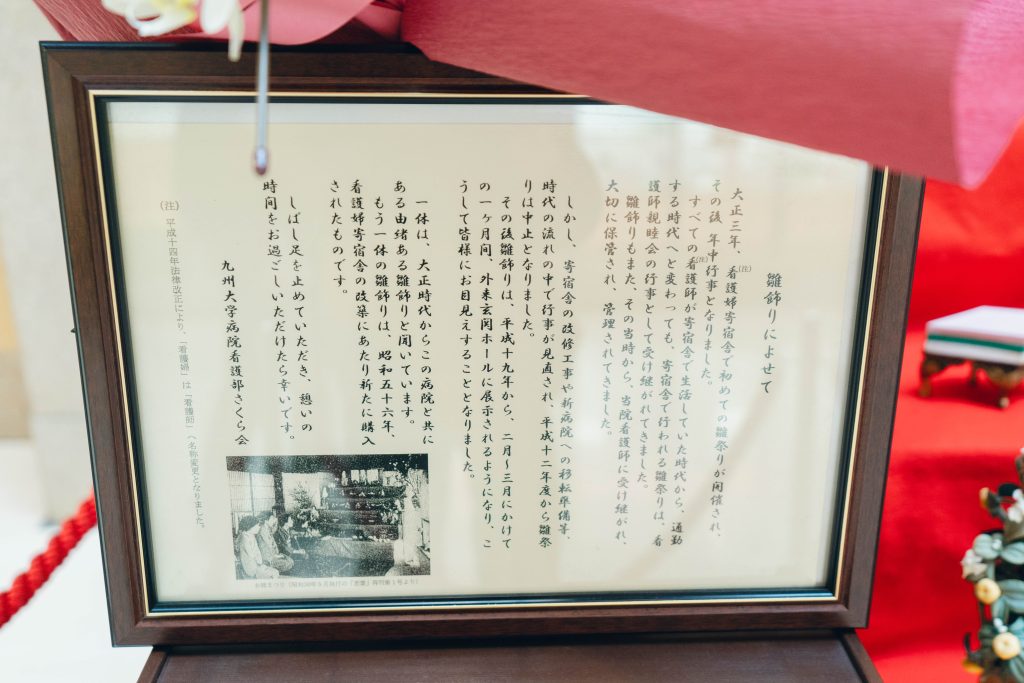 雛飾りによせて
大正三年、看護婦寄宿舎で初めての雛祭りが開催され、
(注)
その後、年中行事となりました。
すべての看護師が寄宿舎で生活していた時代から、通勤
(注)
する時代へと変わっても、寄宿舎で行われる雛祭りは、看
護師親睦会の行事として受け継がれてきました。
雛飾りもまた、その当時から、当院看護師に受け継がれ、
大切に保管され、管理されてきました。
しかし、寄宿舎の改修工事や新病院への移転準備等、
時代の流れの中で行事が見直され、平成十二年度から雛祭
りは中止となりました。
その後雛飾りは、平成十九年から、二月～三月にかけて
の一ヶ月間、外来玄関ホールに展示されるようになり、こ
うして皆様にお目見えすることとなりました。
一体は、大正時代からこの病院と共に
ある由緒ある雛飾りと聞いています。
もう一体の雛飾りは、昭和五十六年、
看護婦寄宿舎の改築にあたり新たに購入
されたものです。
しばし足を止めていただき、憩いの
時間をお過ごしいただけたら幸いです。
九州大学病院看護部さくら会
(注) 平成十四年法律改正により、「看護婦」は「看護師」へ名称変更となりました。